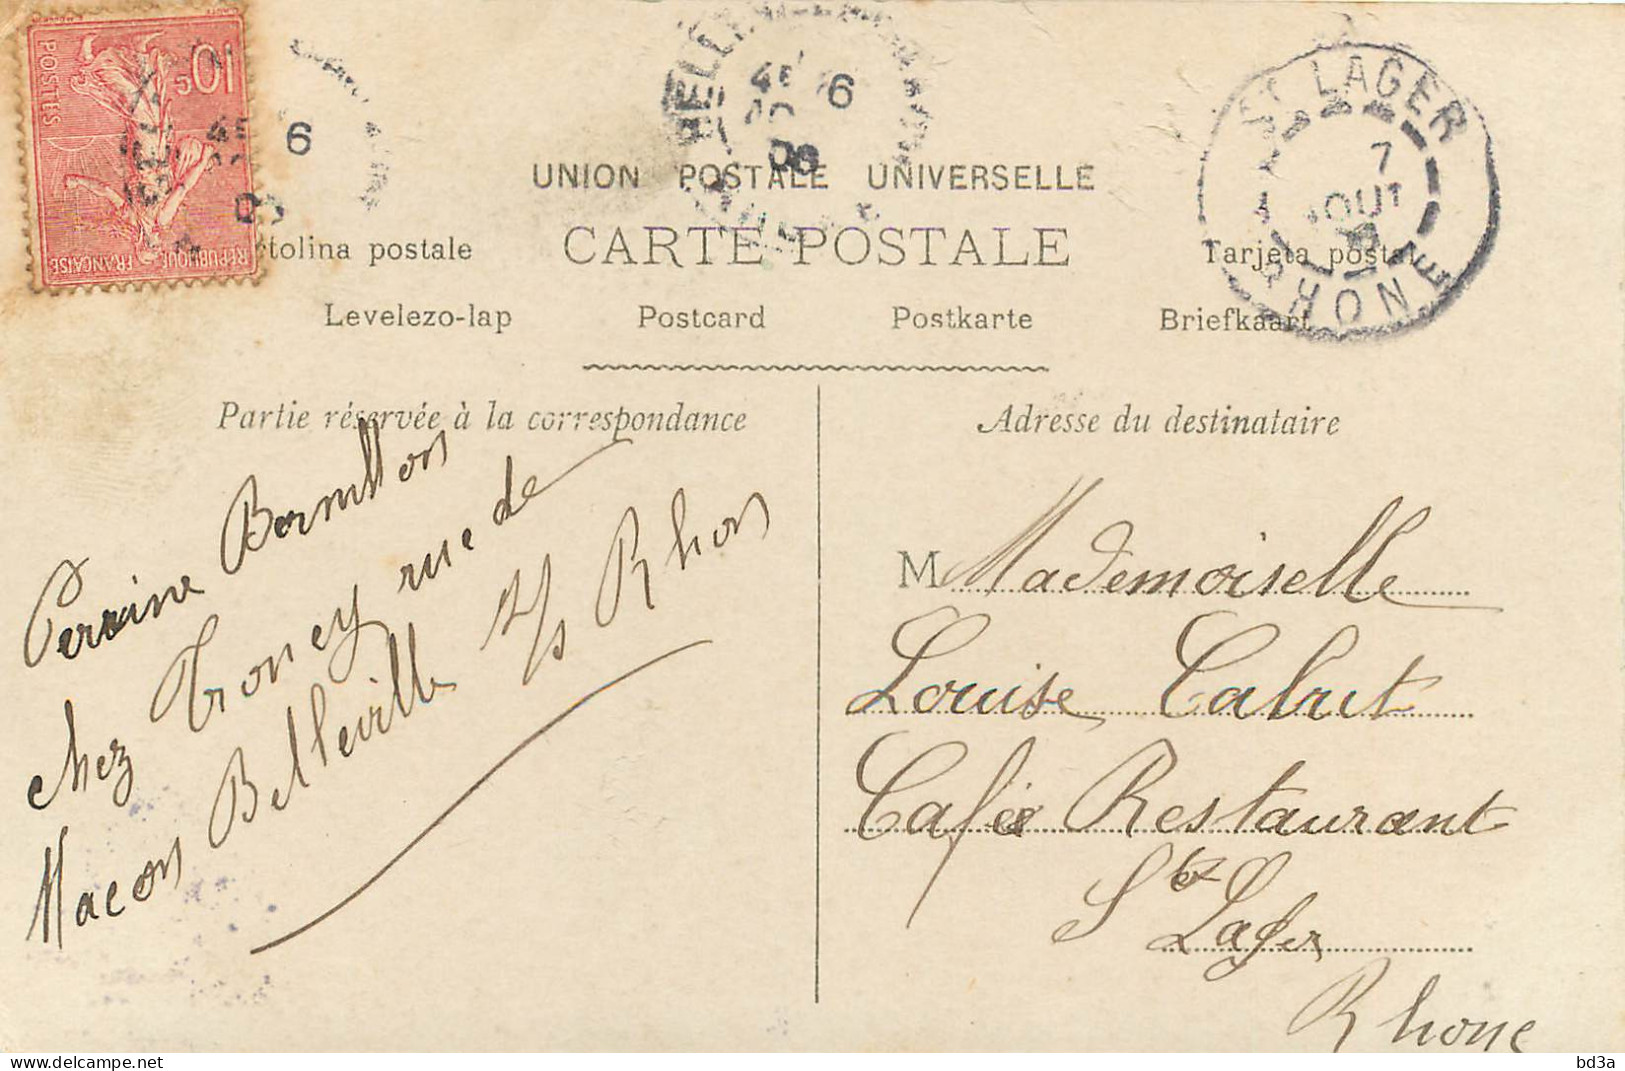 10c
POSTES
RÉPUBLIQUE FRANÇAISE
6
BELLE
6
ST LAGER
7
AOUT
RHONE
UNION POSTALE UNIVERSELLE
CARTE POSTALE
tolina postale
Tarjeta postal
Levelezo-lap Postcard Postkarte Briefkaart
Partie réservée à la correspondance
Perrine Bornillon
chez Troney rue de
Macon Belleville s/s Rhon
Adresse du destinataire
M Mademoiselle
Louise Calrut
Cafés Restaurant
St Lager
Rhone
bd3a